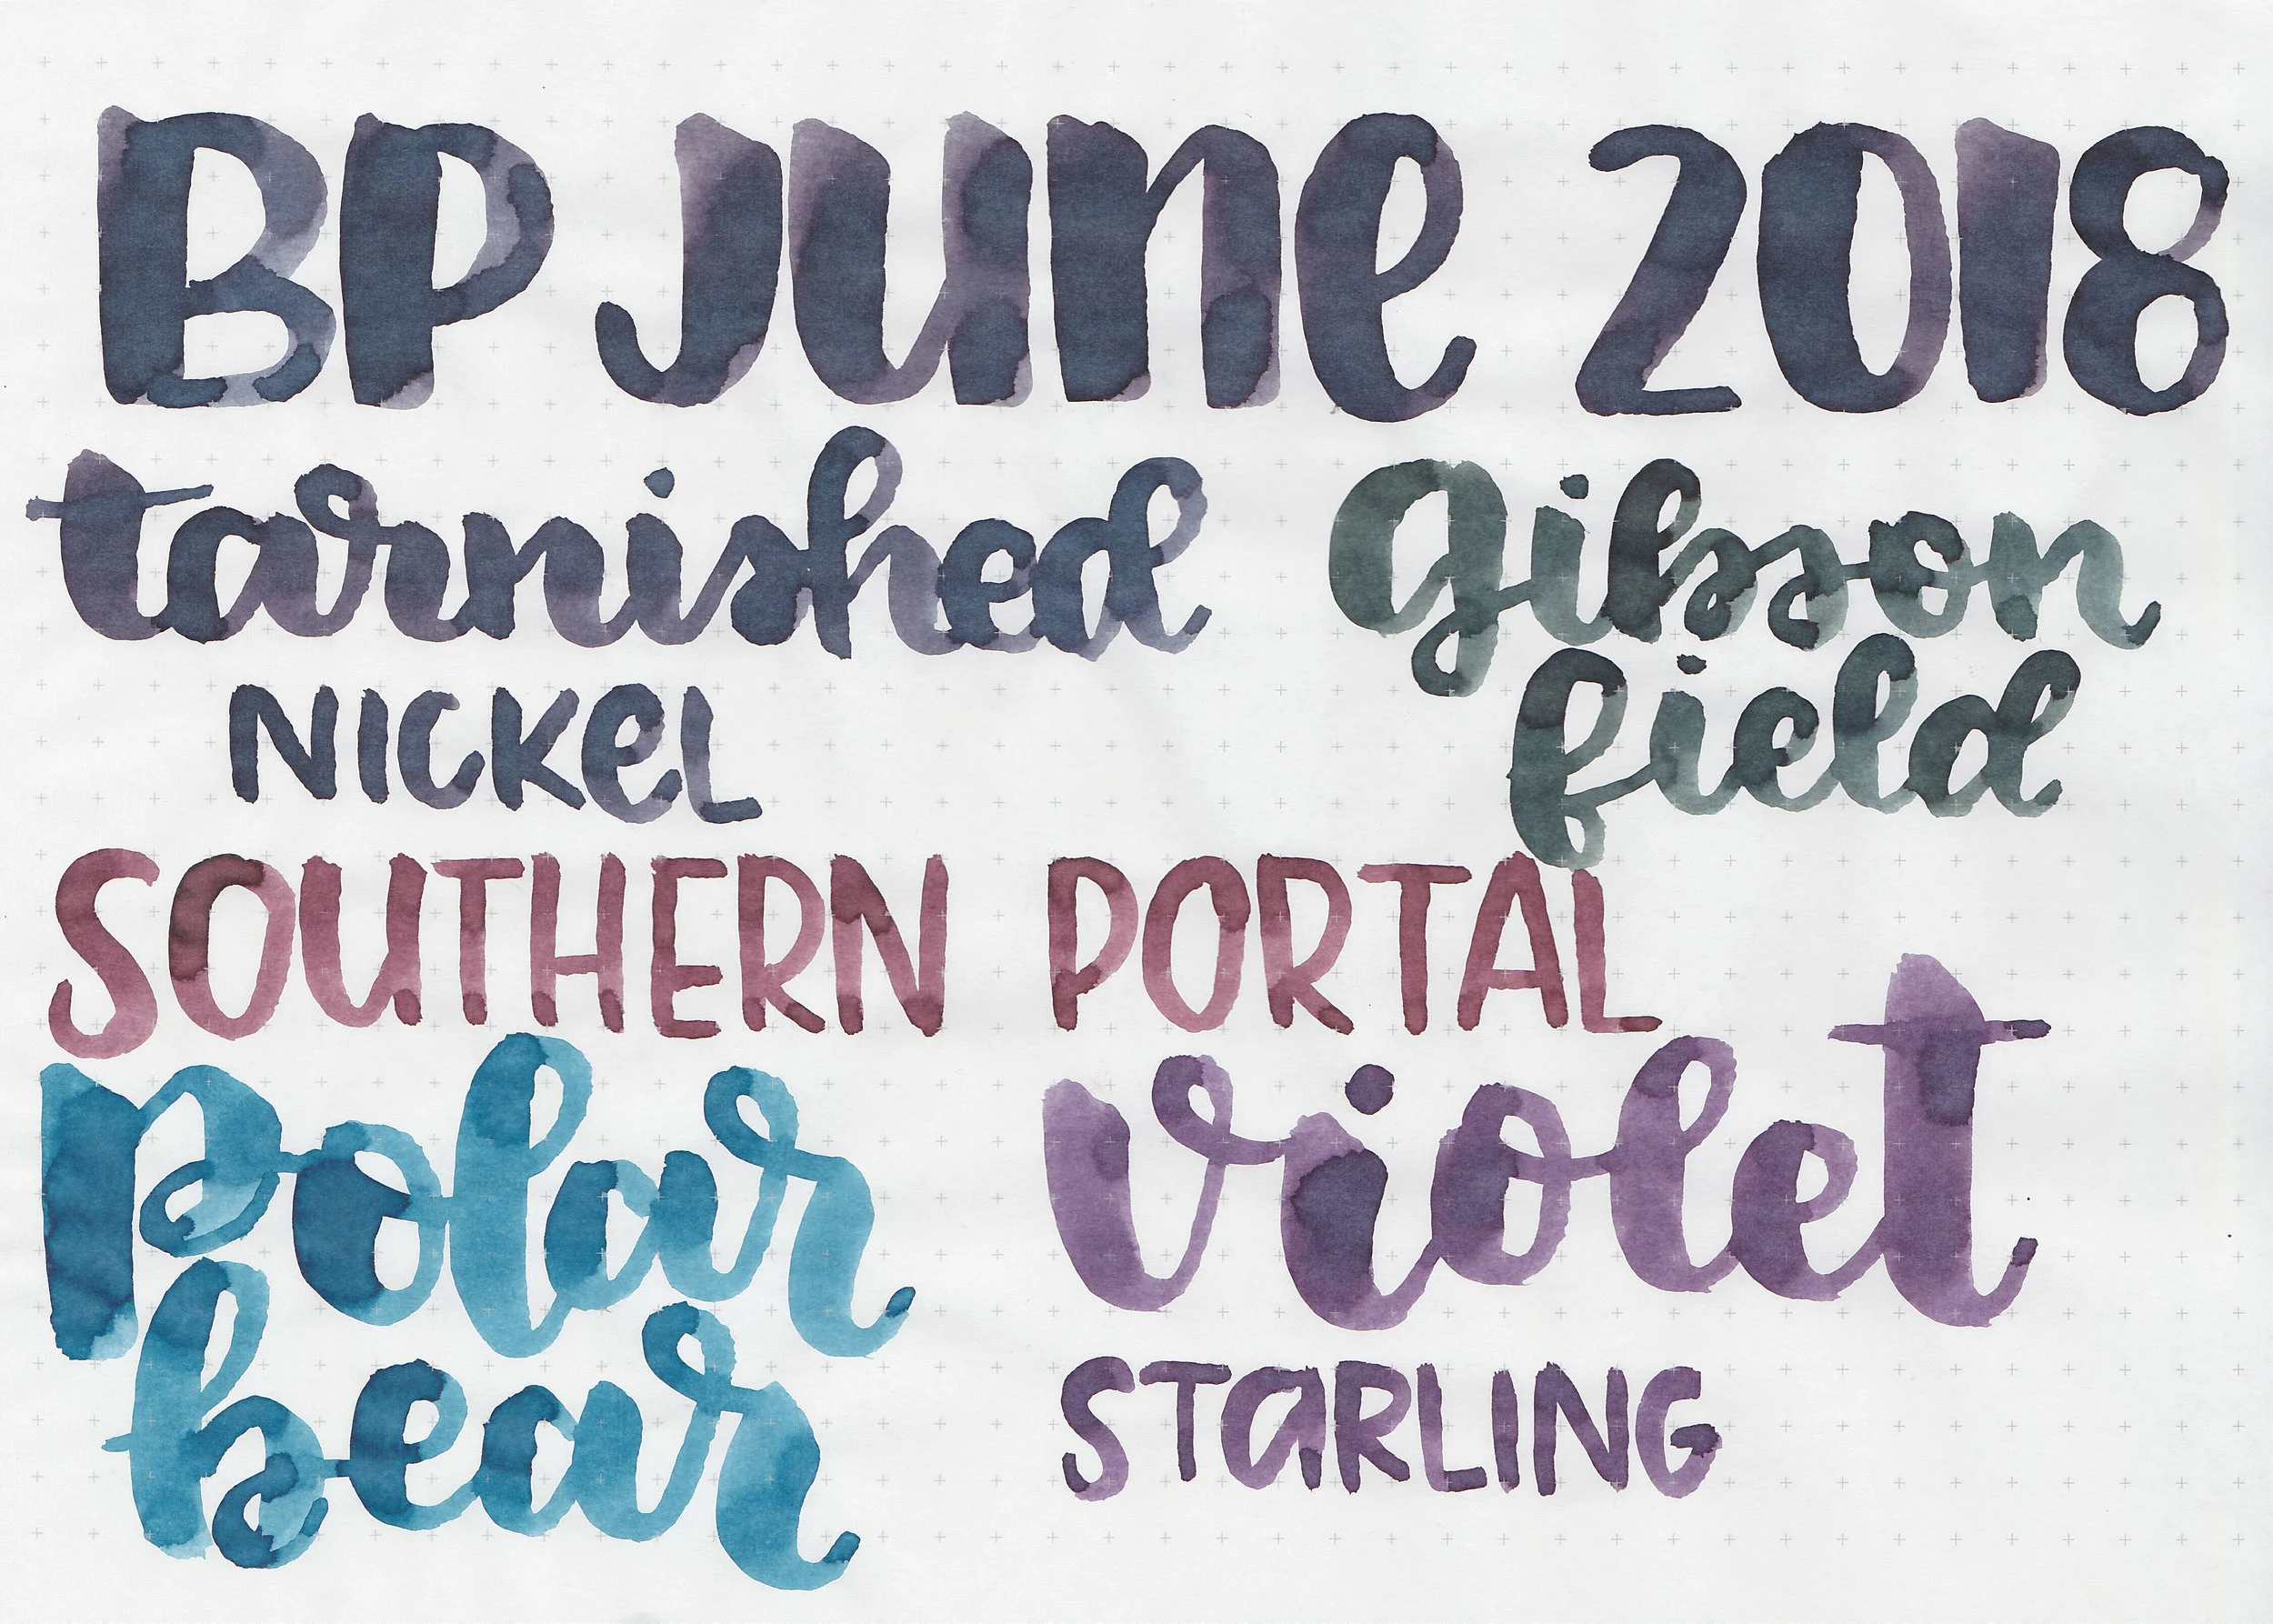 BP June 2018
tarnished
NICKeL
Gibson
field
SOUTHERN PORTAL
polar
bear
violet
STaRLING